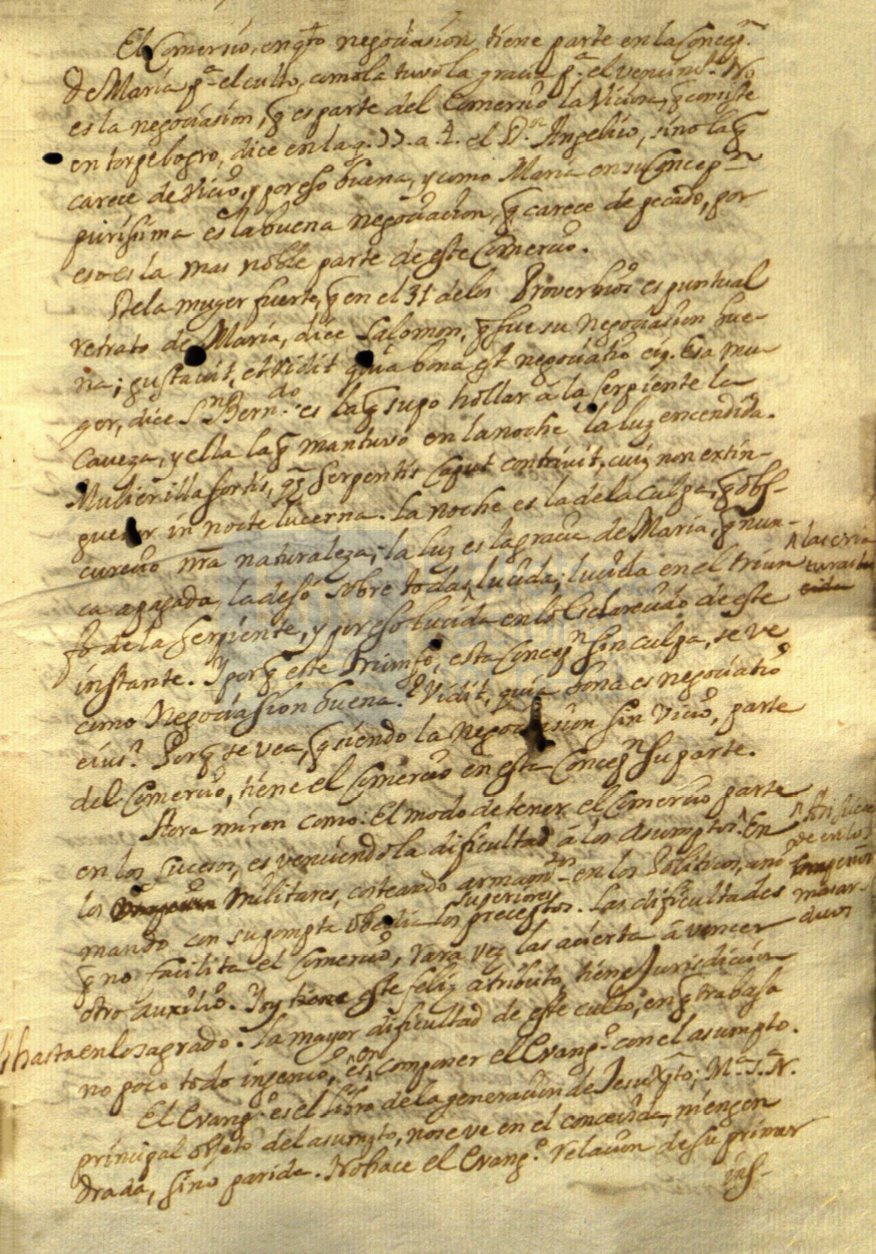 El Comercio, en qto negociasion, tiene parte en la Concepn.
de María pa. el culto, como la tuvo la gracia pa. el vencimto. No
es la negociasion, q̃ es parte del Comercio la viciosa, q̃ consiste
en torpe logro, dice en la q. 77. a. 4. el Dr. Angelico, sino la q̃
carece de vicio, y por eso buena, y como Maria en su Concepn.
purissima es la buena negociacion, q̃ carece de pecado, por
eso es la mas noble parte de este Comercio.
De la muger fuerte, q̃ en el 31 de los Proverbios es puntual
retrato de María, dice Salomon, q̃ fue su negociasion bue-
na; gustavit, et vidit quia bona est negotiatio eius. Esa mu-
ger, dice Sn. Bern.do es la q̃ supo hollar à la serpiente la
Caveza, y ella la q̃ mantuvo en la noche la luz encendida.
Mulier illa fortis, quę Serpentis Caput contrivit, cuius non extin-
guetur in nocte lucerna. La noche es la de la culpa, q̃ obs-
curecio nra naturaleza; la luz es la gracia de María, q̃ nun-
ca apagada la dejó sobre todas lucida; lucida en el triun-
^ las cria
turas
fo de la Serpiente, y por eso lucida en lo esclarecido de este
instante. Y porq̃ este triumfo, esta Concepn. sin culpa, se ve
como Negociassion buena? Vidit, quia bona es negociatio
eius? Porq̃ se vea, q̃ siendo la negociasion sin vicio, parte
del Comercio, tiene el Comercio en esta Concepn. su parte.
Aora miren como: El modo de tener el Comercio parte
en los sucesos, es venciendo la dificultad à los asumptos. En
los militares, costeando armamtos. en los Politicos, ani
mando con su pompa los preceptos. Las dificultades
superiores
mas ar-
duos
q̃ no facilita el Comercio, rara vez las acierta à vencer
otro auxilio. Y este feliz atributo, tiene Jurisdicion
hasta en lo sagrado. La mayor dificultad de este culto, en q̃ trabaja
no poco todo ingenio, es, componer el Evango. con el asumpto.
El Evango. es el libro de la generacion de Jesu Xpto; Ma. S.a N.
principal objeto del asumpto, no se ve en el concevida, ni engen
drada, sino parida. No hace el Evango. relacion de su primer
ins-